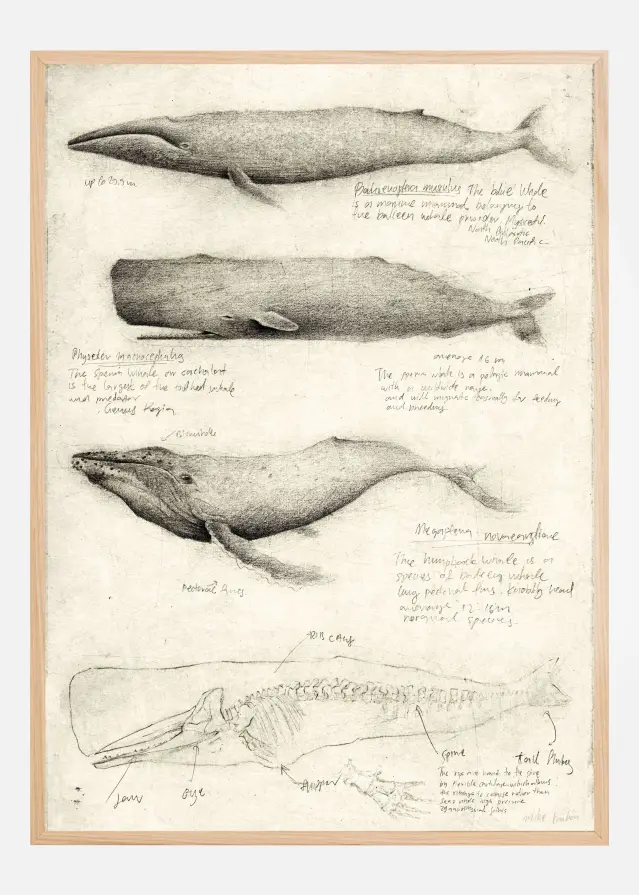 up to 29.9 m
Balaenoptera musculus The blue Whale
is a marine mammal belonging to
the baleen whale
North Atlantic
North Pacific
Physeter macrocephalus
The sperm Whale or cachalot
is the largest of the toothed whale
and predator
average 16 m
The sperm whale is a pelagic mammal
with a worldwide range.
and will migrate seasonally for feeding
and breeding.
Blowhole
Megaptera novaeangliae
The humpback whale is a
species of baleen whale
long pectoral fins. knobbly head
average 12-16m
rorqual species.
Pectoral fins
RIB CAGE
spine
Jaw
eye
flipper
The rips are bound to the spine
by flexible cartilage which allows
the ribcage to collapse rather than
snap under high pressure